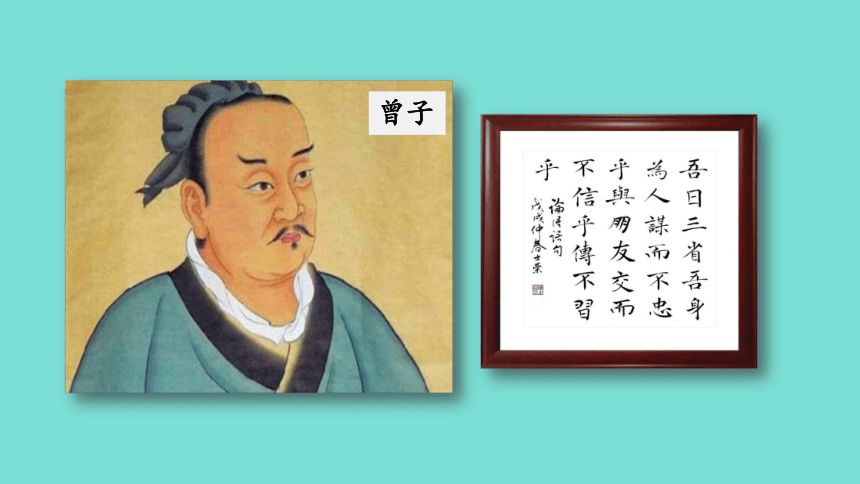 曾子
吾日三省吾身
為人謀而不忠
乎與朋友交而
不信乎傳不習
乎
論語語句
戊戌仲春士荣